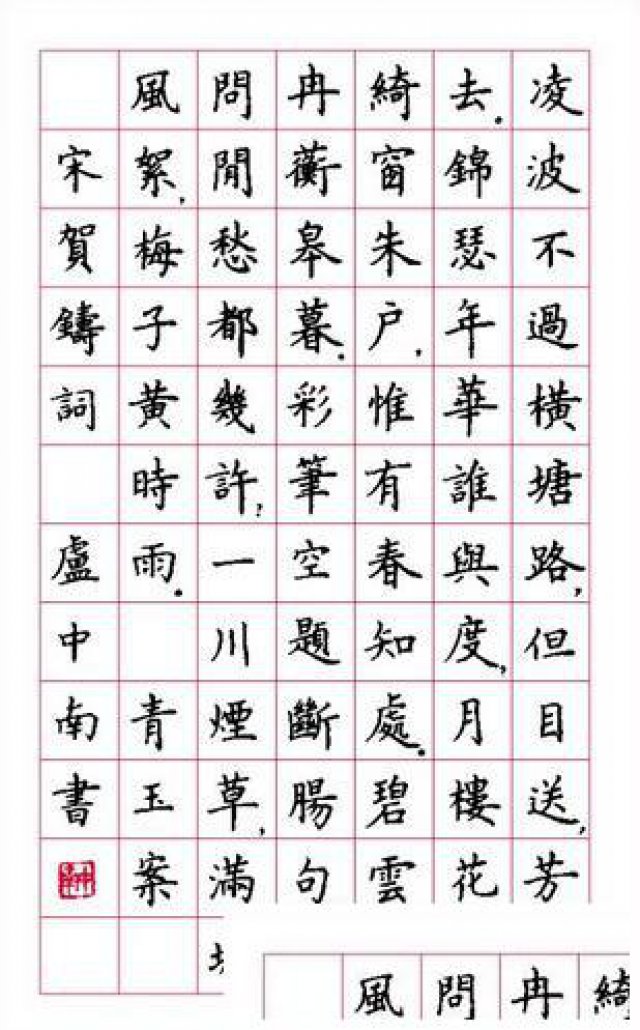 凌波不過橫塘路，但目送，芳
去。錦瑟年華誰與度，月樓花
綺窗朱户，惟有春知處。碧雲
冉蘅皋暮。彩筆空題斷腸句
問閒愁都幾許？一川煙草，滿
風絮，梅子黃時雨。 青玉案
宋賀鑄詞 盧中南書
綺
冉
問
風